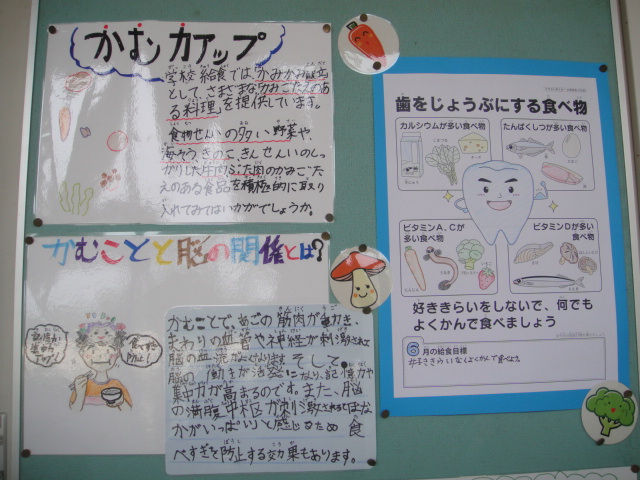 かむ力アップ
学校給食では、かみかみ献立
として、さまざまなかみごたえのあ
る料理を提供しています。
食物せんいの多い野菜や、
海そう、きのこ、きんせんいのしっ
かりした牛肉、ぶた肉のかみごた
えのある食品を積極的に取り
入れてみてはいかがでしょうか。
かむことと脳の関係とは?
食べすぎ
防止!
かむことで、あごの筋肉が動き、
まわりの血管や神経が刺激されて
脳の血流がよくなります。そして、
脳の働きが活発になり、記憶力や
集中力が高まるのです。また、脳
の満腹中枢が刺激されるとおな
かがいっぱいと感じるため食
べすぎを防止する効果もあります。
歯をじょうぶにする食べ物
カルシウムが多い食べ物
たんぱくしつが多い食べ物
ビタミンA、Cが
多い食べ物
ビタミンDが多い
食べ物
好ききらいをしないで、何でも
よくかんで食べましょう
6月の給食目標
好ききらいなくよくかんで食べよう